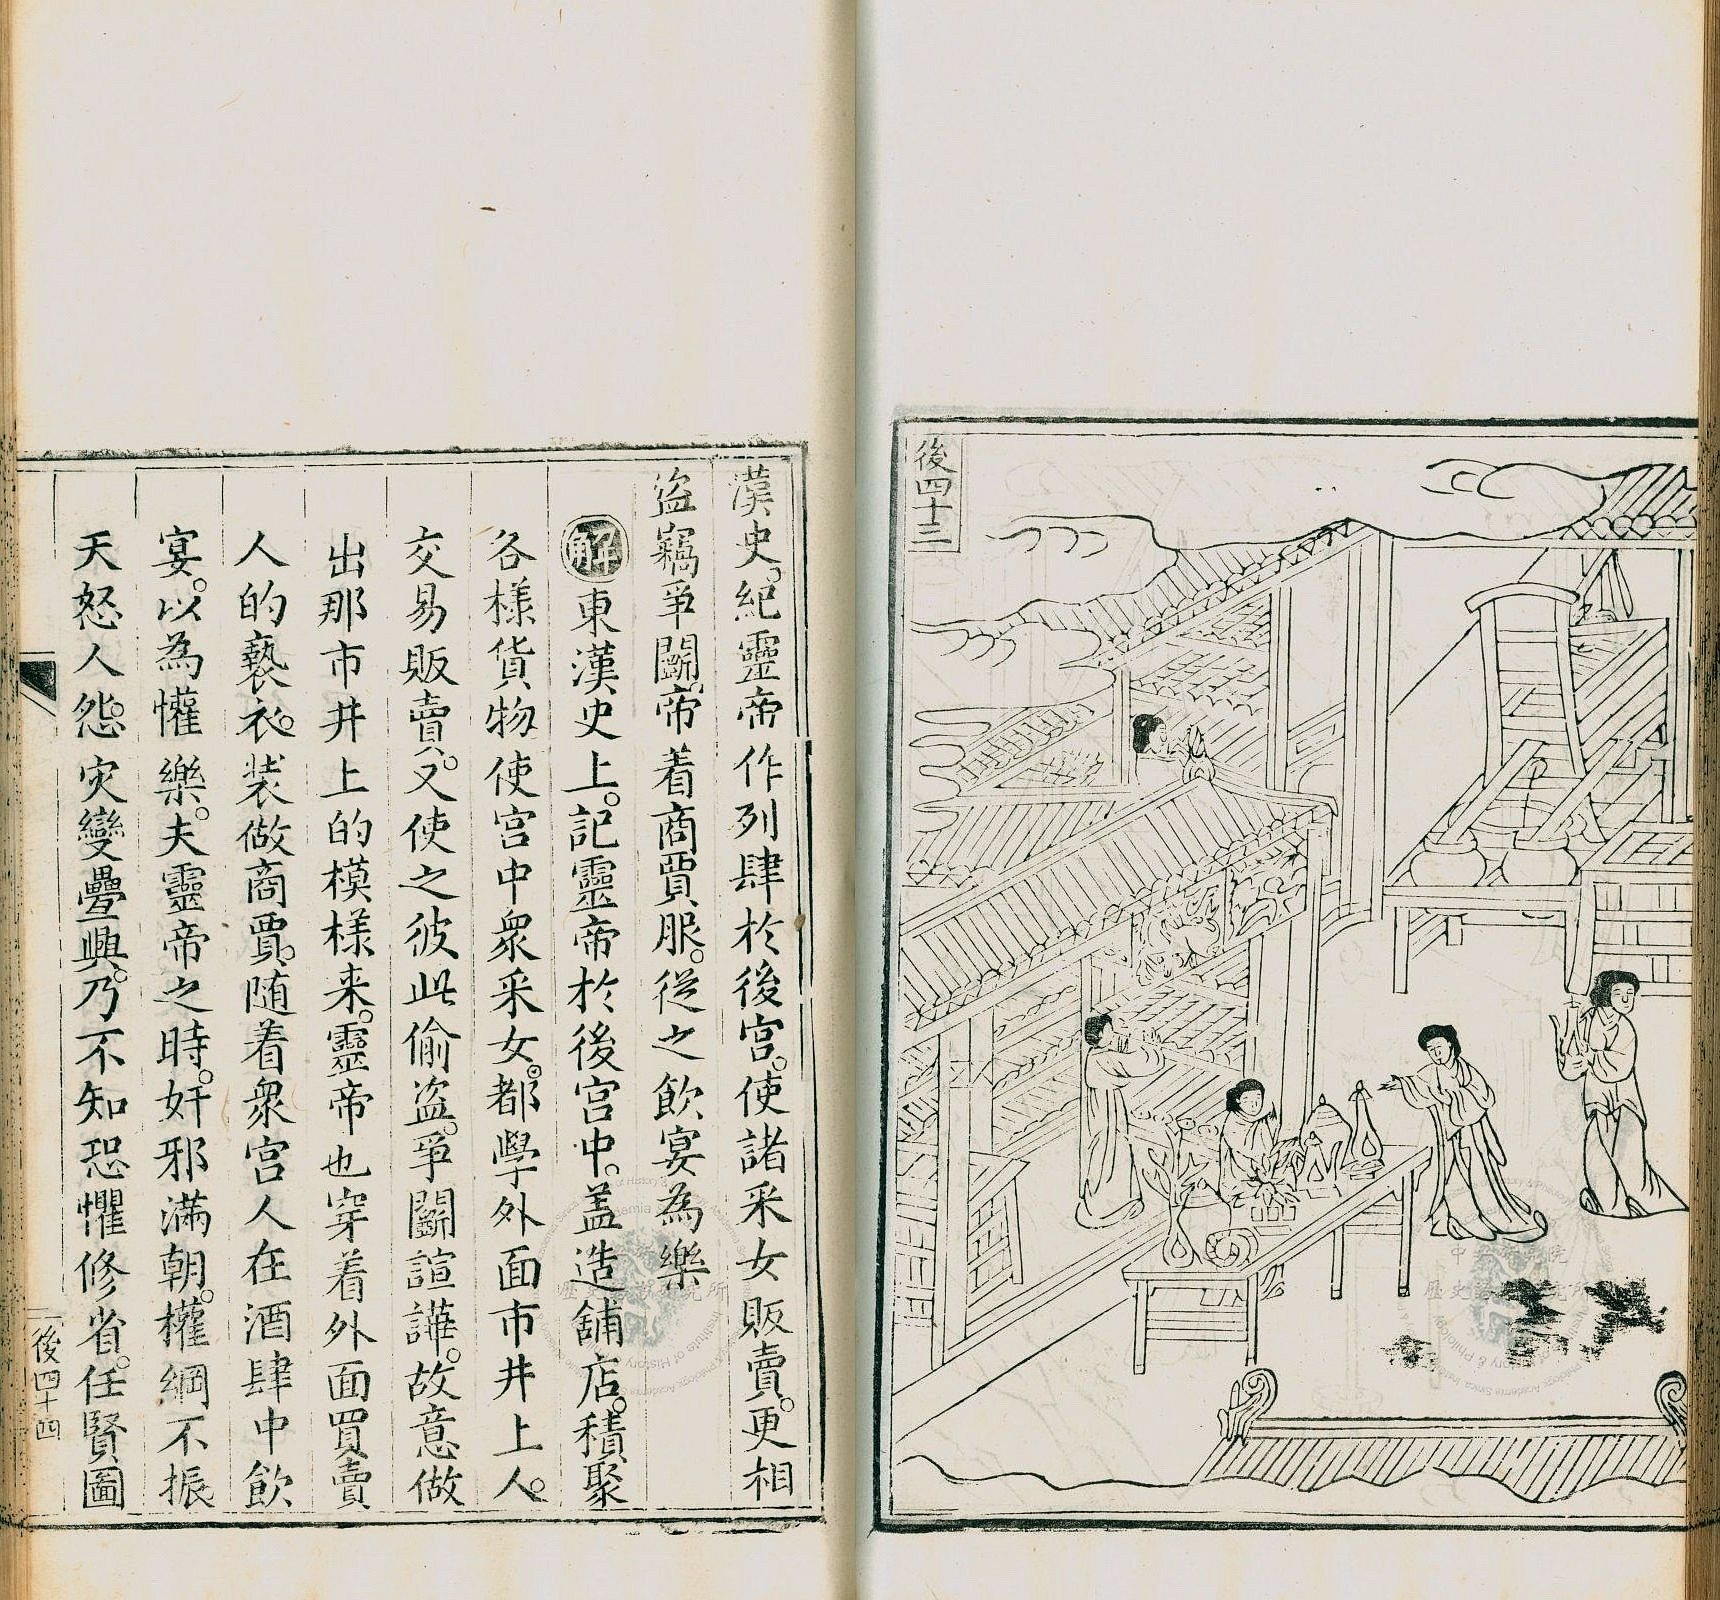 後四十三
漢史紀靈帝作列肆於後宮使諸采女販賣更相
盜竊爭鬭帝着商賈服從之飲宴為樂
解東漢史上記靈帝於後宮中盖造舖店積聚
各樣貨物使宮中衆采女都學外面市井上人
交易販賣又使之彼此偷盜爭鬭諠譁故意做
出那市井上的模樣来靈帝也穿着外面買賣
人的褻衣装做商賈随着衆宮人在酒肆中飲
宴以為懽樂夫靈帝之時奸邪滿朝權綱不振
天怒人怨灾變疊興乃不知恐懼修省任賢圖
後四十四